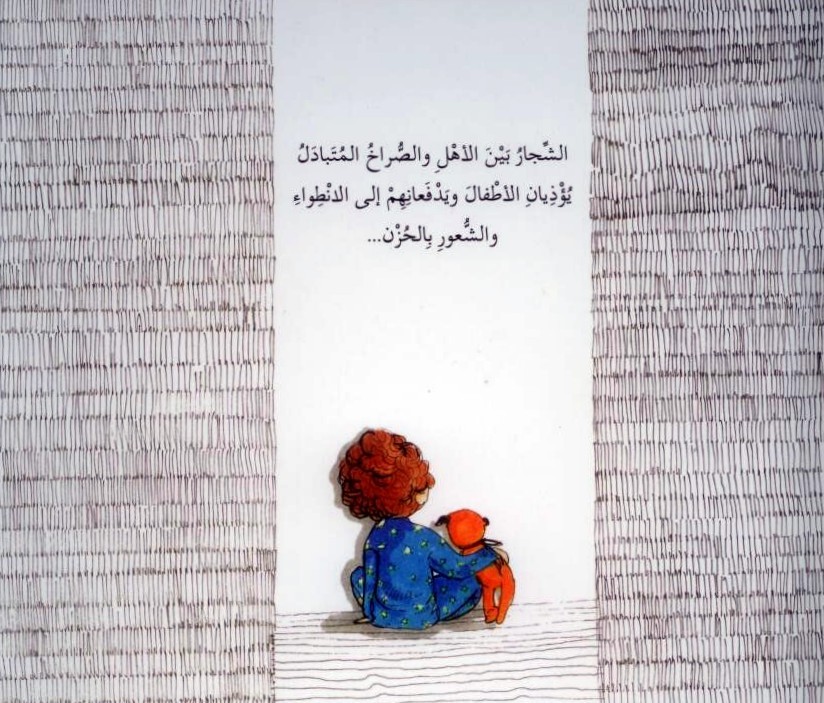 الشِّجارُ بَيْنَ الأَهْلِ والصُّراخُ المُتَبادَلُ
يُؤْذِيانِ الأَطْفالَ ويَدْفَعانِهِمْ إلى الانْطِواءِ
والشُّعورِ بِالحُزْن...